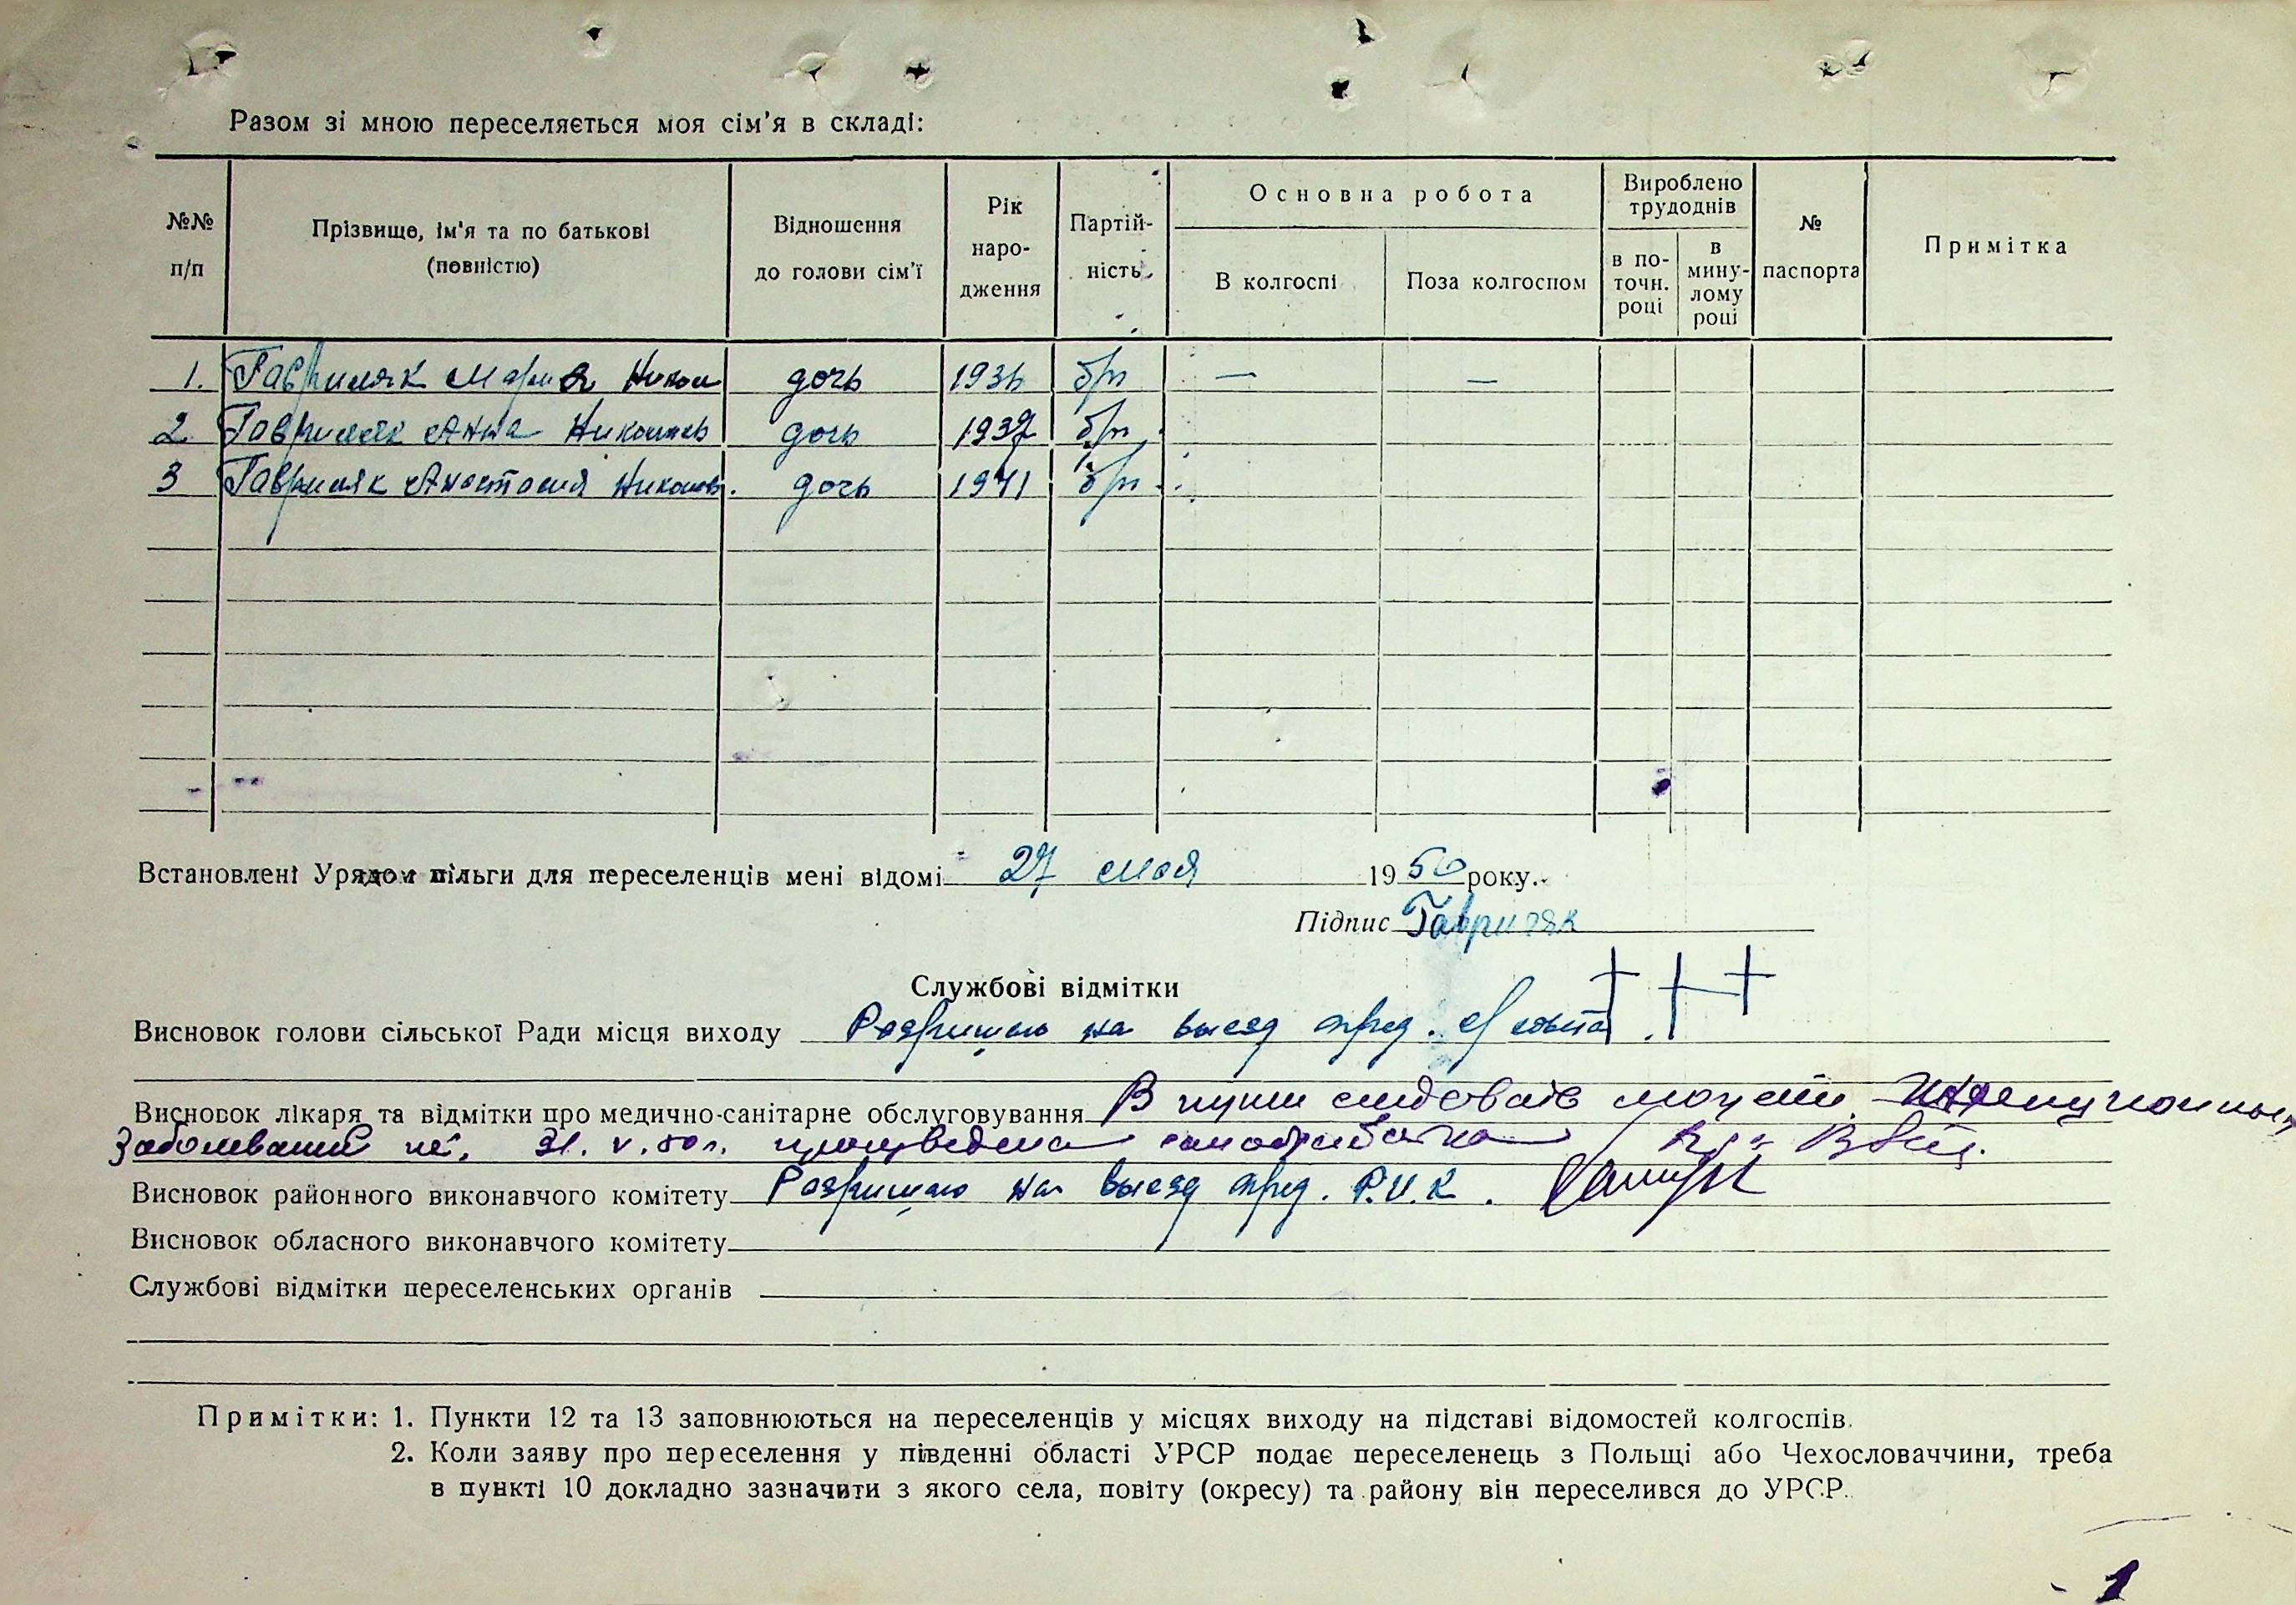 Разом зі мною переселяється моя сім'я в складі:
№№ п/п
Прізвище, ім'я та по батькові (повністю)
Відношення до голови сім'ї
Рік народження
Партійність
Основна робота
В колгоспі
Поза колгоспом
Вироблено трудоднів
в поточн. році
в минулому році
№ паспорта
Примітка
1. Гавриляк Мария Никол дочь 193 б/п — —
2 Гавриляк Анна Николаев дочь 1937 б/п
3 Гавриляк Анастасия Николаев. дочь 1941 б/п
Встановлені Урядом пільги для переселенців мені відомі 27 мая 1950 року.
Підпис Гавриляк
Службові відмітки
Висновок голови сільської Ради місця виходу Разришаю на выезд пред. с/совета
Висновок лікаря та відмітки про медично-санітарне обслуговування В пути следовать может. Инфекционных
Заболеваний нет. 31. V. 50 г. произведена санобработка
Висновок районного виконавчого комітету Разришаю на выезд пред. Р.И.К.
Висновок обласного виконавчого комітету
Службові відмітки переселенських органів
Примітки: 1. Пункти 12 та 13 заповнюються на переселенців у місцях виходу на підставі відомостей колгоспів.
2. Коли заяву про переселення у південні області УРСР подає переселенець з Польщі або Чехословаччини, треба
в пункті 10 докладно зазначити з якого села, повіту (окресу) та району він переселився до УРСР.
1